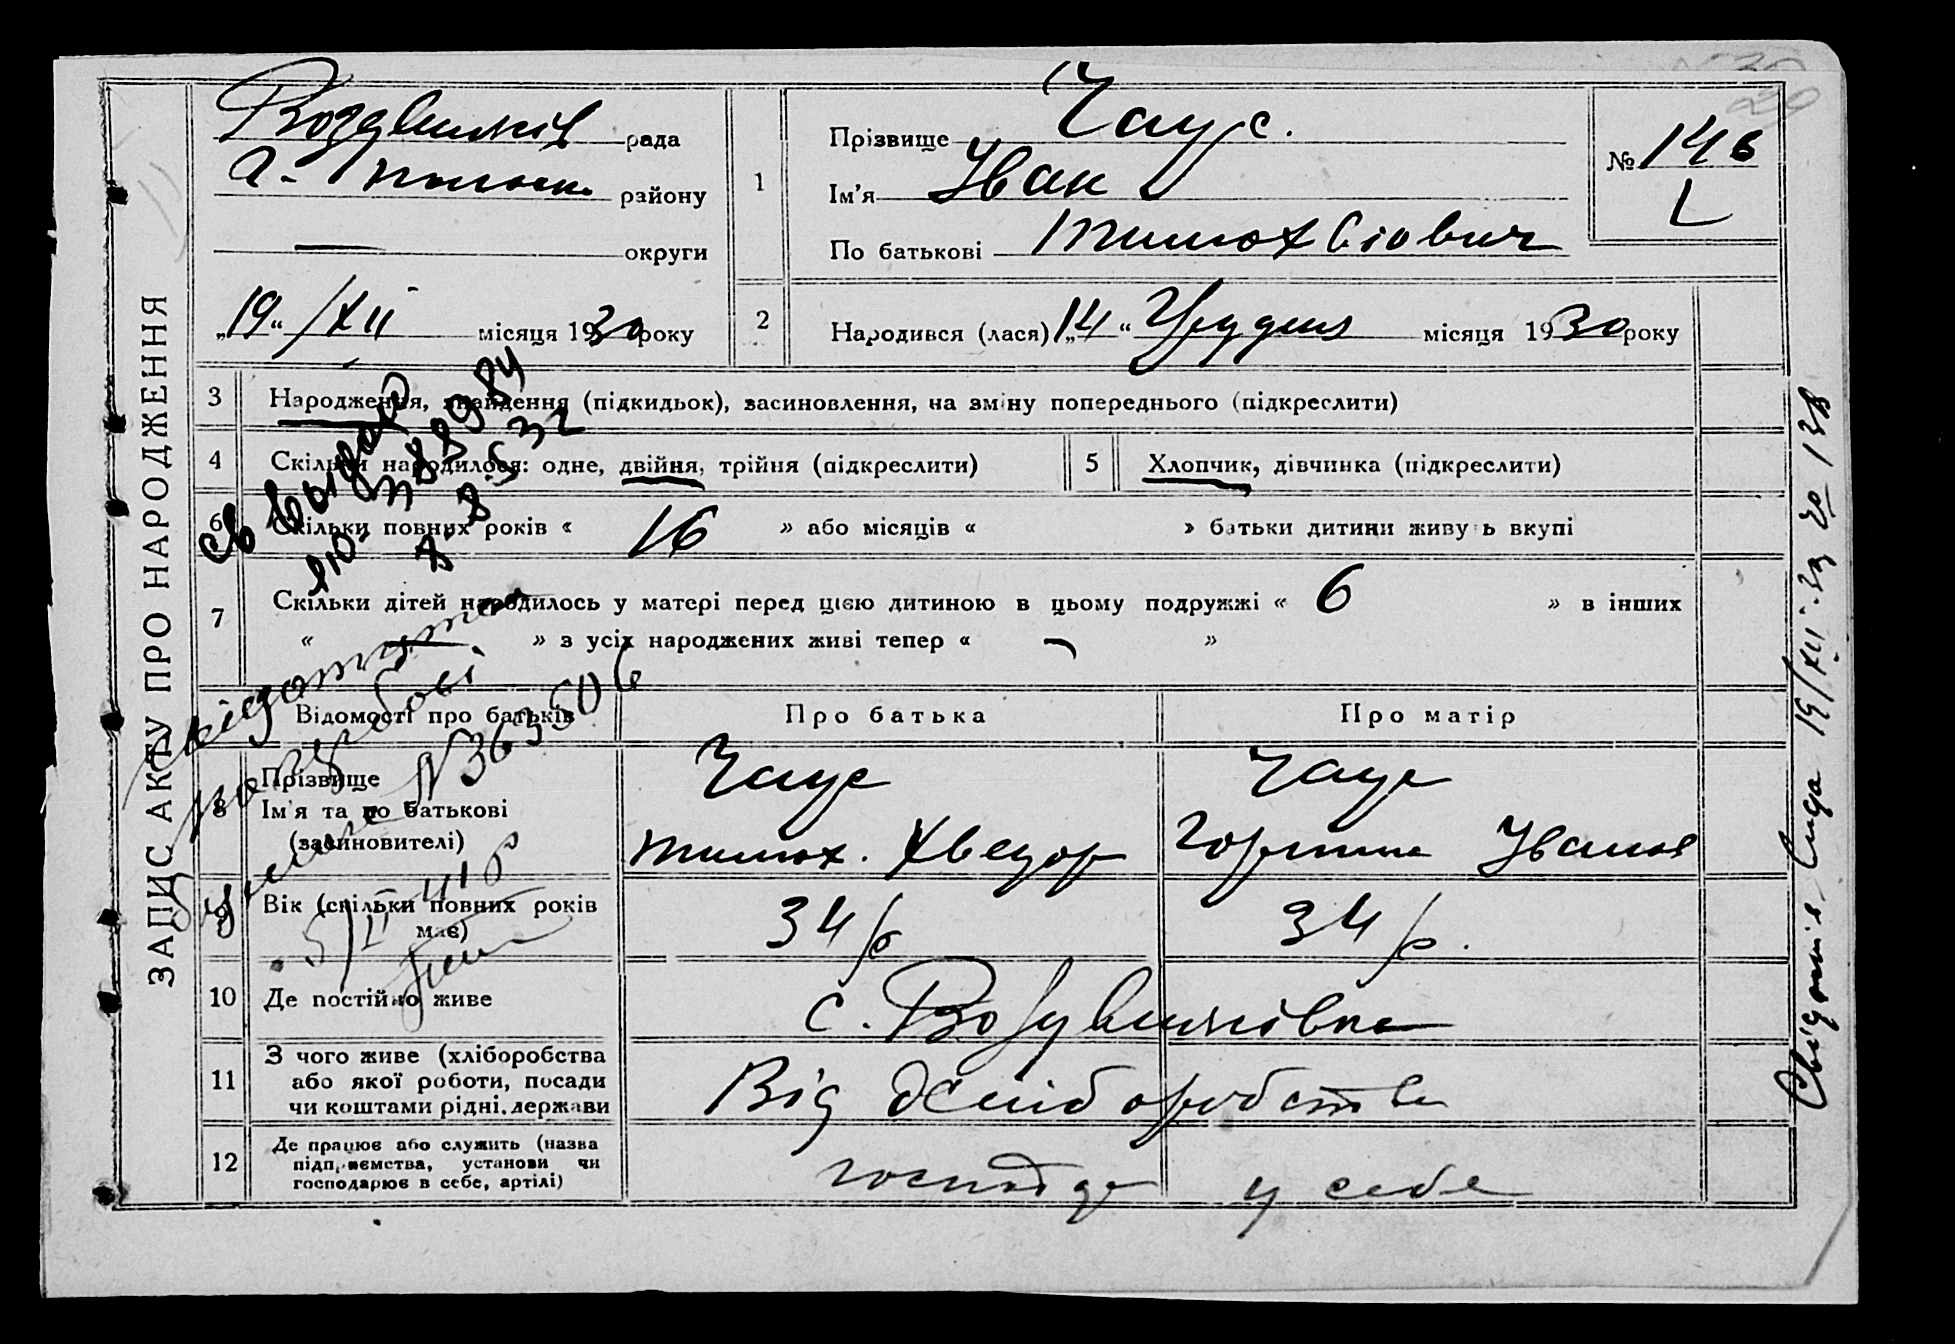 ЗАПИС АКТУ ПРО НАРОДЖЕННЯ
рада
району
округи
„19“ /XII місяця 1930 року
1
Прізвище Чаус.
Ім'я Іван
По батькові Тимохвіович
№ 146
2
Народився (лася) „14“ Грудня місяця 1930 року
3 Народження, знайдення (підкидьок), засиновлення, на зміну попереднього (підкреслити)
4 Скільки народилося: одне, двійня, трійня (підкреслити)
5 Хлопчик, дівчинка (підкреслити)
6 Скільки повних років « 16 » або місяців « » батьки дитини живуть вкупі
7 Скільки дітей народилось у матері перед цією дитиною в цьому подружжі « 6 » в інших
« — » з усіх народжених живі тепер « »
Відомості про батьків
Про батька
Про матір
8 Прізвище
Ім'я та по батькові
(засиновителі)
Чаус
Тимох. Хведор
Чаус
Горпина Іванов
9 Вік (скільки повних років має)
34 р
34 р.
10 Де постійно живе
с. Воздвижівка
11 З чого живе (хліборобства
або якої роботи, посади
чи коштами рідні, держави
Від хліборобства
12 Де працює або служить (назва
підприємства, установи чи
господарює в себе, артілі)
господар у себе
св выдано
ЯЮ. 388984
8.8.532
свідоцтво
по
N363506
5/II 41 р
19/XII.30